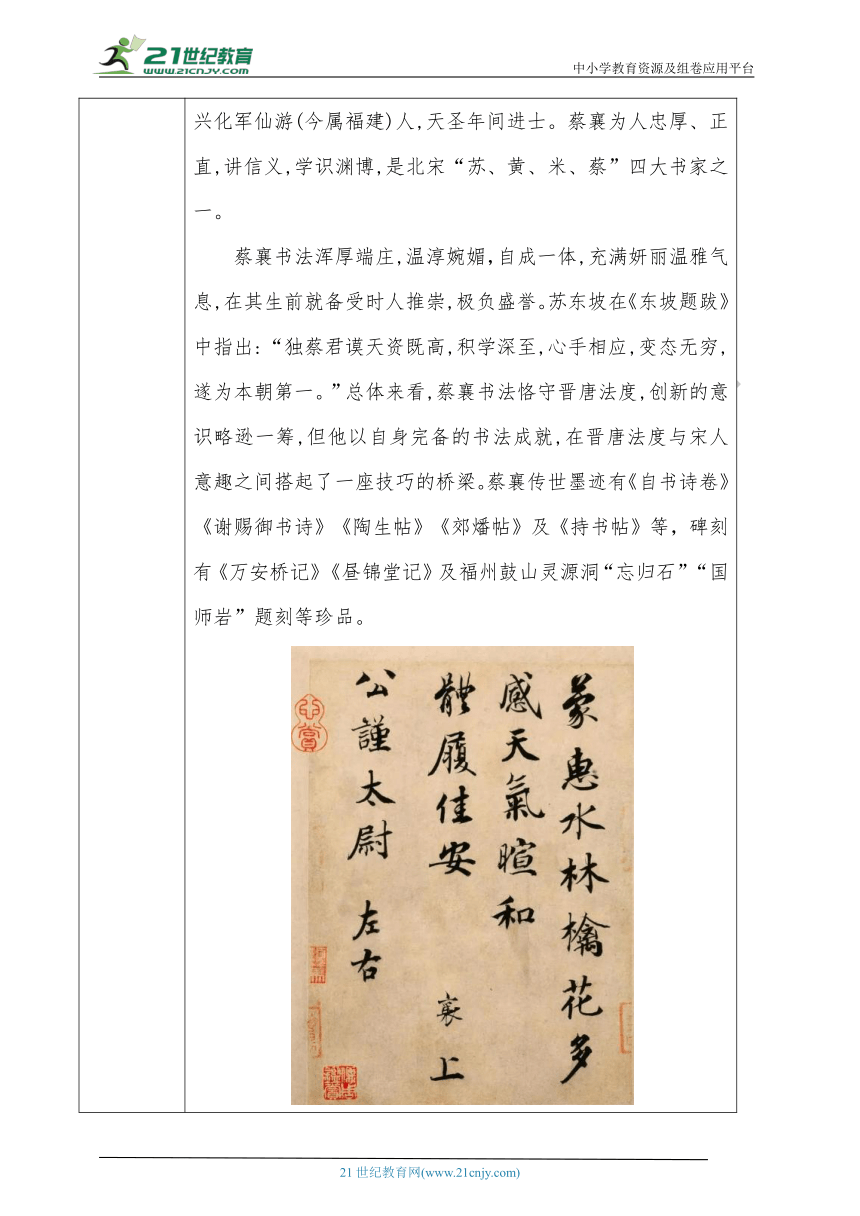 21世纪教育
www.21cnjy.com
中小学教育资源及组卷应用平台
兴化军仙游(今属福建)人,天圣年间进士。蔡襄为人忠厚、正
直,讲信义,学识渊博,是北宋“苏、黄、米、蔡”四大书家之
一。
蔡襄书法浑厚端庄,温淳婉媚,自成一体,充满妍丽温雅气
息,在其生前就备受时人推崇,极负盛誉。苏东坡在《东坡题跋》
中指出:“独蔡君谟天资既高,积学深至,心手相应,变态无穷,
遂为本朝第一。”总体来看,蔡襄书法恪守晋唐法度,创新的意
识略逊一筹,但他以自身完备的书法成就,在晋唐法度与宋人
意趣之间搭起了一座技巧的桥梁。蔡襄传世墨迹有《自书诗卷》
《谢赐御书诗》《陶生帖》《郊燔帖》及《持书帖》等，碑刻
有《万安桥记》《昼锦堂记》及福州鼓山灵源洞“忘归石”“国
师岩”题刻等珍品。
蒙惠水林檎花多
感天氣暄和
體履佳安 襄上
公謹太尉 左右
21世纪教育网(www.21cnjy.com)